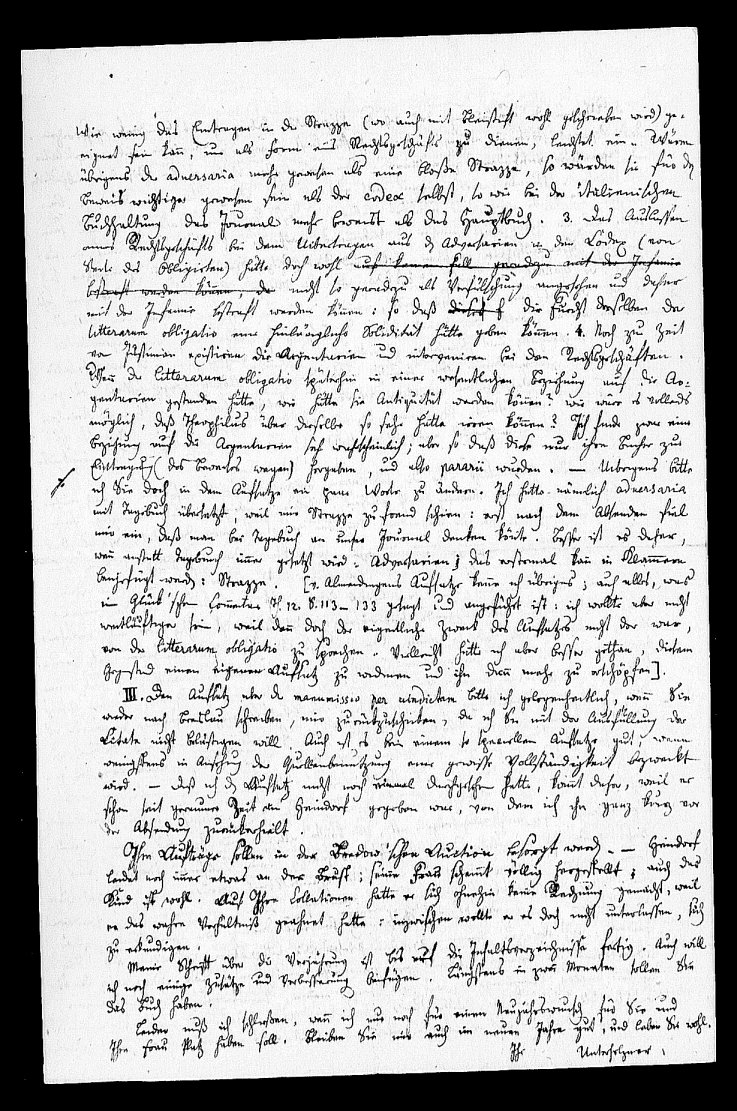 Wie wenig das Eintragen in die Strazze (wo auch mit Bleistift wohl geschrieben wird) ge-
eignet sein kann, um als Form eines Rechtsgeschäfts zu dienen, leuchtet ein. Wären
übrigens die adversaria mehr gewesen als eine bloße Strazze, so würden sie für den
Beweis wichtiger gewesen sein als der codex selbst, so wie bei der italienischen
Buchhaltung das Journal mehr beweist als das Hauptbuch. 3. Das Auslassen
eines Rechtsgeschäfts bei dem Uibertragen aus den Adversarien in den Codex (von
Seite des Obligirten) hätte doch wohl auf keinen Fall geradezu mit der Infamie
bestraft werden können, da nicht so geradezu als Verfälschung angesehen und daher
mit der Infamie bestraft werden können: so daß die Furcht derselben der
litterarum obligatio eine hinlängliche Solidität hätte geben können. 4. Noch zu Zeit
von Justinian existiren die Argentarien und interveniren bei den Rechtsgeschäften.
Wenn die litterarum obligatio späterhin in einer wesentlichen Beziehung auf die Ar-
gentarien gestanden hätte, wie hätte sie Antiquität werden können? wie wäre es vollends
möglich, daß Theophilus über dieselbe so sehr hätte irren können? Ich finde zwar eine
Beziehung auf die Argentarien sehr wahrscheinlich; aber so daß diese nur ihre Bücher zur
Eintragung (des Beweises wegen) hergeben, und also pararii wurden. — Uibrigens bitte
ich Sie doch in dem Aufsatze ein paar Worte zu ändern. Ich hatte nämlich adversaria
mit Tagebuch übersetzt, weil mir Strazze zu fremd schien: erst nach dem Absenden fiel
mir ein, daß man bei Tagebuch an unser Journal denken könnte. Besser ist es daher,
wenn anstatt Tagebuch immer gesetzt wird: Adversarien; das erstemal kann in Klammern
beigefügt werden: Strazze. [v. Almendingens Aufsatz kenne ich übrigens; auch alles, was
im Glück'schen Commentar Th. 12. S. 113–133 gesagt und angeführt ist: ich wollte aber nicht
weitläuftiger sein, weil denn doch der eigentliche Zweck des Aufsatzes nicht der war,
von der litterarum obligatio zu sprechen. Vielleicht hätte ich aber besser gethan, diesem
Gegenstand einen eigenen Aufsatz zu widmen und ihn dann mehr zu erschöpfen].
III. Den Aufsatz über die manumissio per vindictam bitte ich gelegenheitlich, wenn Sie
wieder nach Breslau schreiben, mir zurückzuschicken, da ich Sie mit der Ausfüllung der
Citate nicht belästigen will. Auch ist es bei einem so speciellen Aufsatze gut, wenn
wenigstens in Ansehung der Quellenbenutzung eine gewisse Vollständigkeit bezweckt
wird. — Daß ich den Aufsatz nicht noch einmal durchgesehen hatte, kommt daher, weil er
schon seit geraumer Zeit an Heindorf gegeben war, von dem ich ihn ganz kurz vor
der Absendung zurückerhielt.
Ihre Aufträge sollen in der Bredow'schen Auction besorgt werden. — Heindorf
leidet noch immer etwas an der Brust; seine Frau scheint völlig hergestellt; auch das
Kind ist wohl. Auf Ihre Collationen hatte er sich ohnehin keine Rechnung gemacht, weil
er das wahre Verhältniß geahnet hatte: inzwischen wollte er es doch nicht unterlassen, sich
zu erkundigen.
Meine Schrift über die Verjährung ist bis auf die Inhaltsverzeichnisse fertig. Auch will
ich noch einige Zusätze und Verbesserung beifügen. Längstens in zwei Monaten sollen Sie
das Buch haben.
Leider muß ich schließen, wenn ich nur noch für einen Neujahrswunsch für Sie und
Ihre Frau Platz haben soll. Bleiben Sie mir auch im neuen Jahre gut, und leben Sie wohl.
Ihr Unterholzner.